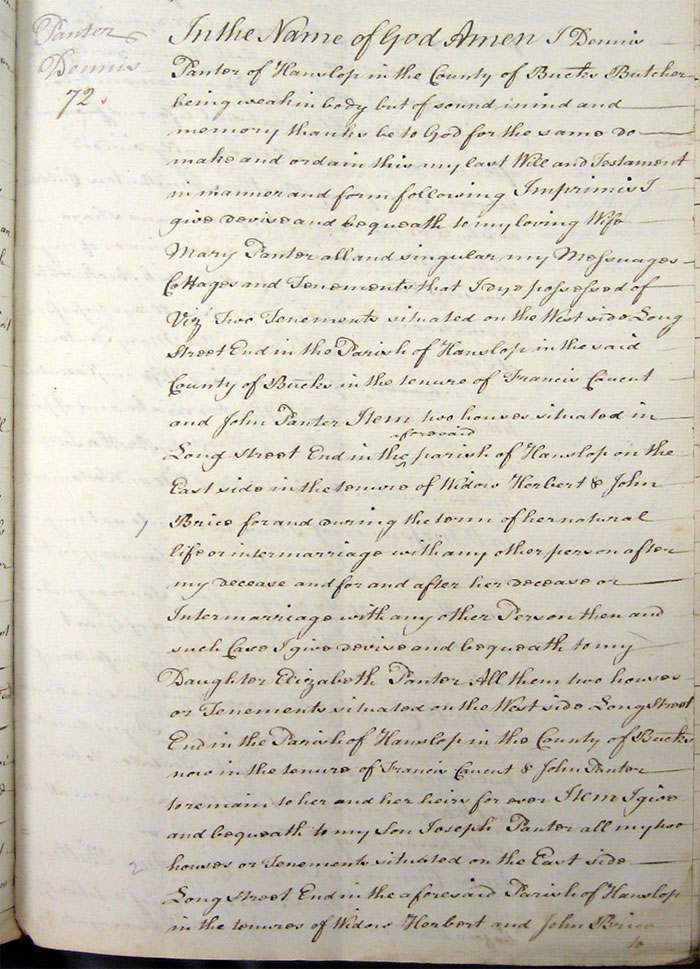 Panter
Dennis
72.
In the Name of God Amen I Dennis
Panter of Hanslop in the County of Bucks Butcher
being weak in body but of sound mind and
memory thanks be to God for the same do
make and ordain this my last Will and Testament
in manner and form following Imprimis I
give devise and bequeath to my loving Wife
Mary Panter all and singular my Messuages
Cottages and Tenements that I dye possessed of
Vizt Two Tenements situated on the West side Long
Street End in the Parish of Hanslop in the said
County of Bucks in the tenure of Francis Caucut
and John Panter Item two houses situated in
Long Street End in the aforesaid parish of Hanslop on the
East side in the tenure of Widow Herbert & John
Brice for and during the term of her natural
life or intermarriage with any other person after
my decease and for and after her decease or
Intermarriage with any other Person then and
such Case I give devise and bequeath to my
Daughter Elizabeth Panter All them two houses
or Tenements situated on the West side Long Street
End in the Parish of Hanslop in the County of Bucks
now in the tenure of Francis Caucut & John Panter
to remain to her and her heirs for ever Item I give
and bequeath to my Son Joseph Panter all my two
houses or Tenements situated on the East side
Long Street End in the aforesaid Parish of Hanslop
in the tenures of Widow Herbert and John Brice
to